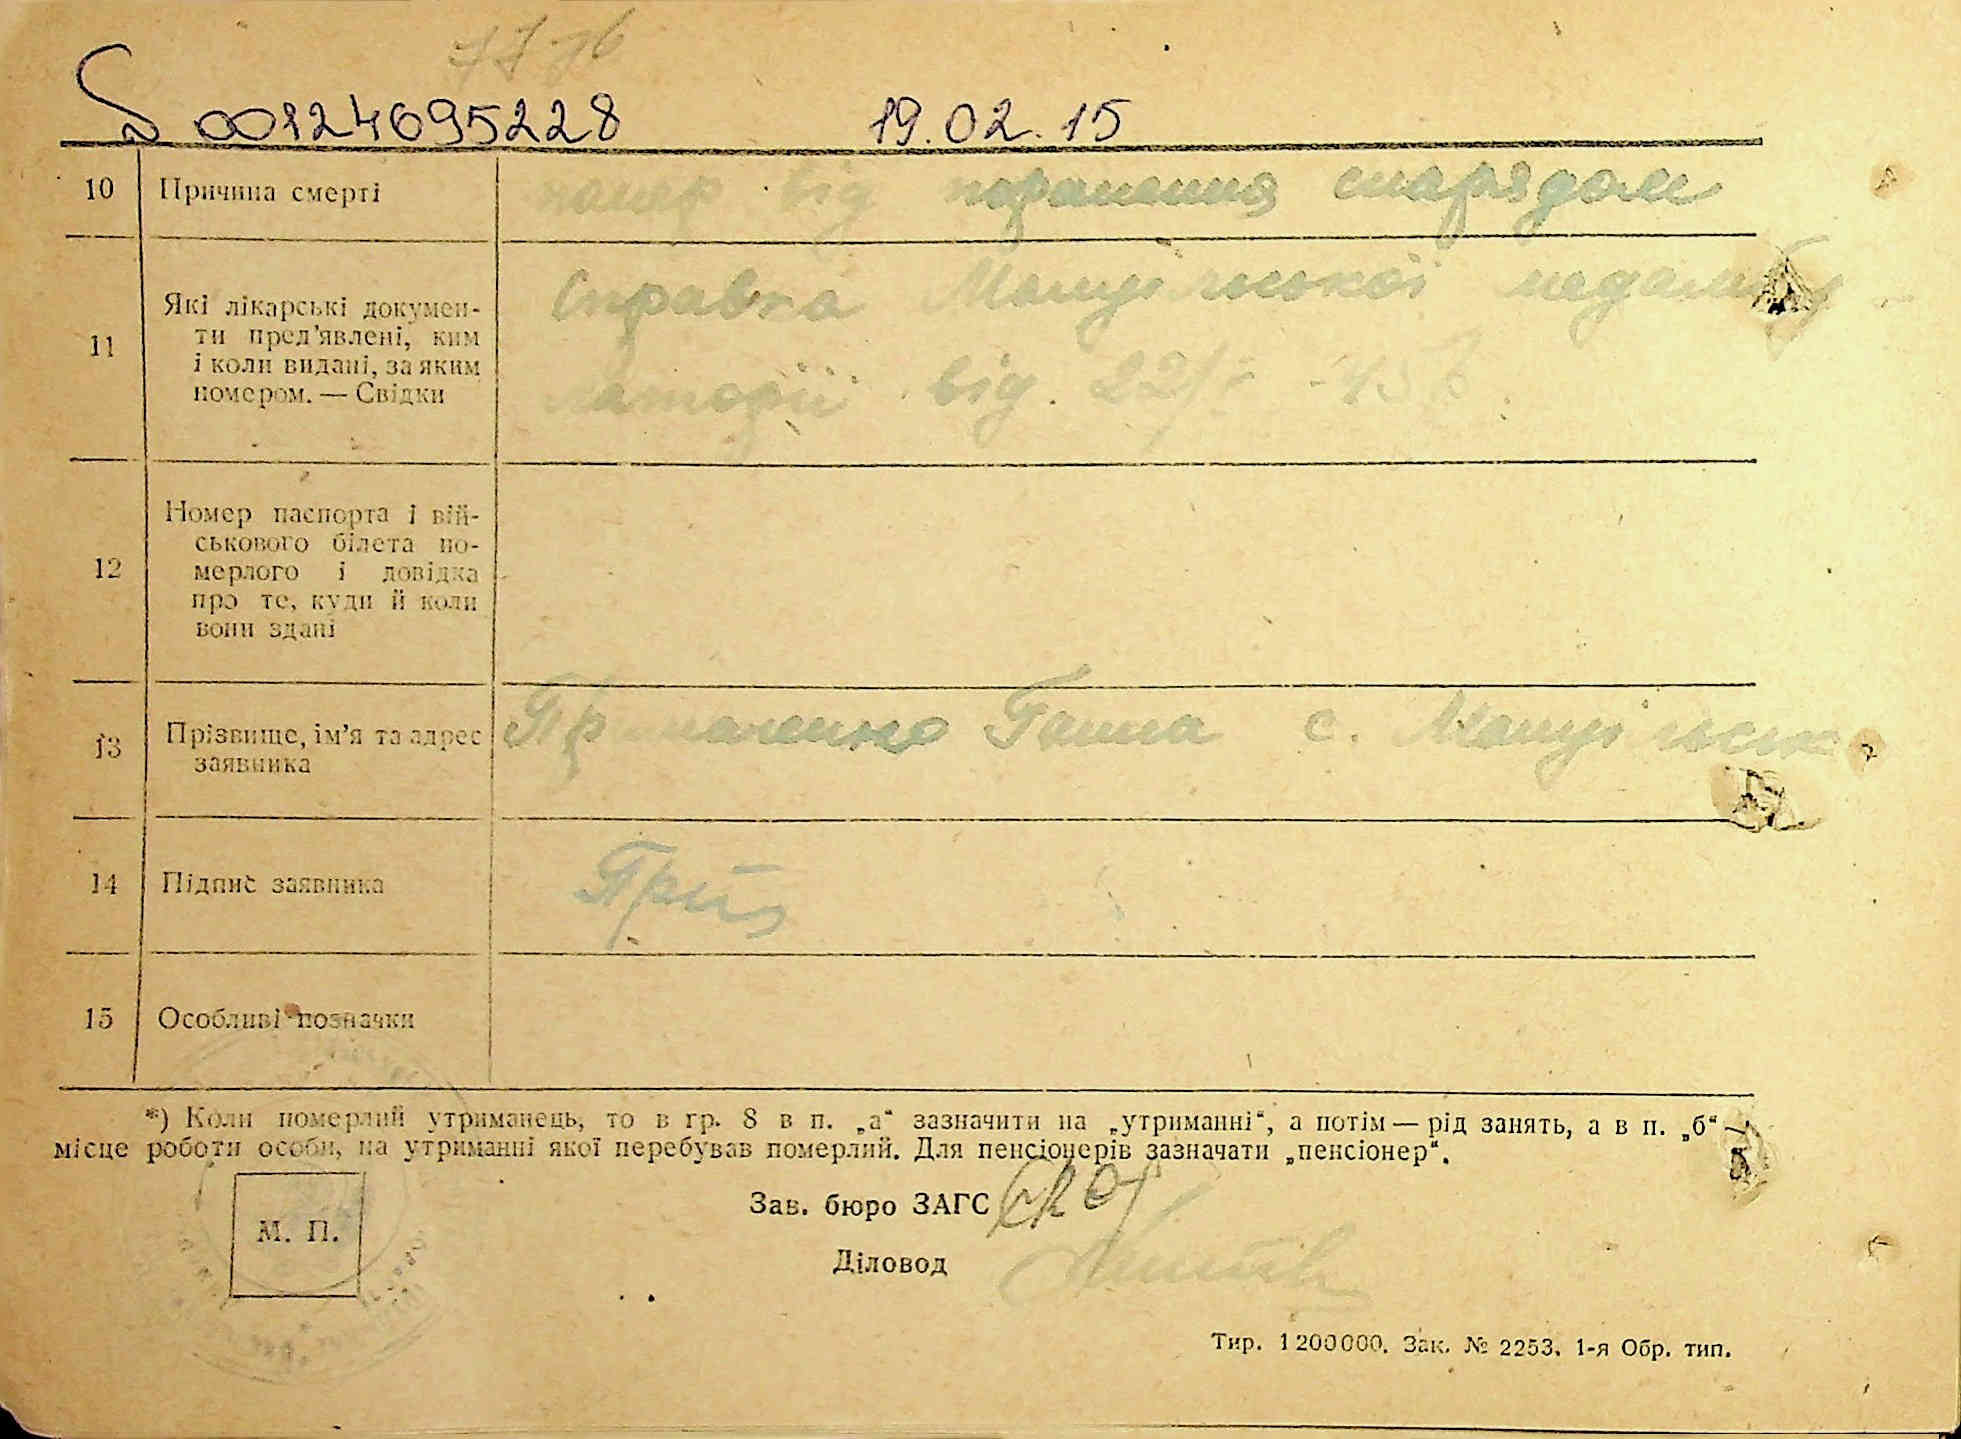 00124695228 19.02.15
10 Причина смерті помер від поранення снарядом
11 Які лікарські докумен-
ти пред'явлені, ким
і коли видані, за яким
номером. — Свідки
Справка Мануїльської медамбу
латорії від 22/
12 Номер паспорта і вій-
ськового білета по-
мерлого і довідка
про те, куди й коли
вони здані
13 Прізвище, ім'я та адрес
заявника
Ганна с. Мануїльськ
14 Підпис заявника
15 Особливі позначки
*) Коли померлий утриманець, то в гр. 8 в п. „а“ зазначити на „утриманні“, а потім — рід занять, а в п. „б“ —
місце роботи особи, на утриманні якої перебував померлий. Для пенсіонерів зазначати „пенсіонер“.
М. П.
Зав. бюро ЗАГС
Діловод
Тир. 1200000. Зак. № 2253. 1-я Обр. тип.